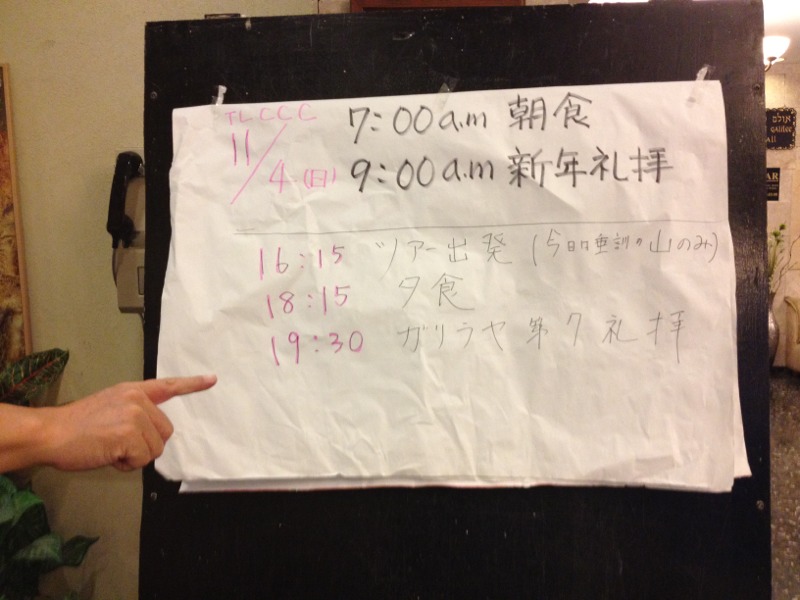 TLCCC
11/4(日)
7:00a.m 朝食
9:00a.m 新年礼拝
16:15 ツアー出発 (今日は垂訓の山のみ)
18:15 夕食
19:30 ガリラヤ第7礼拝
אולם